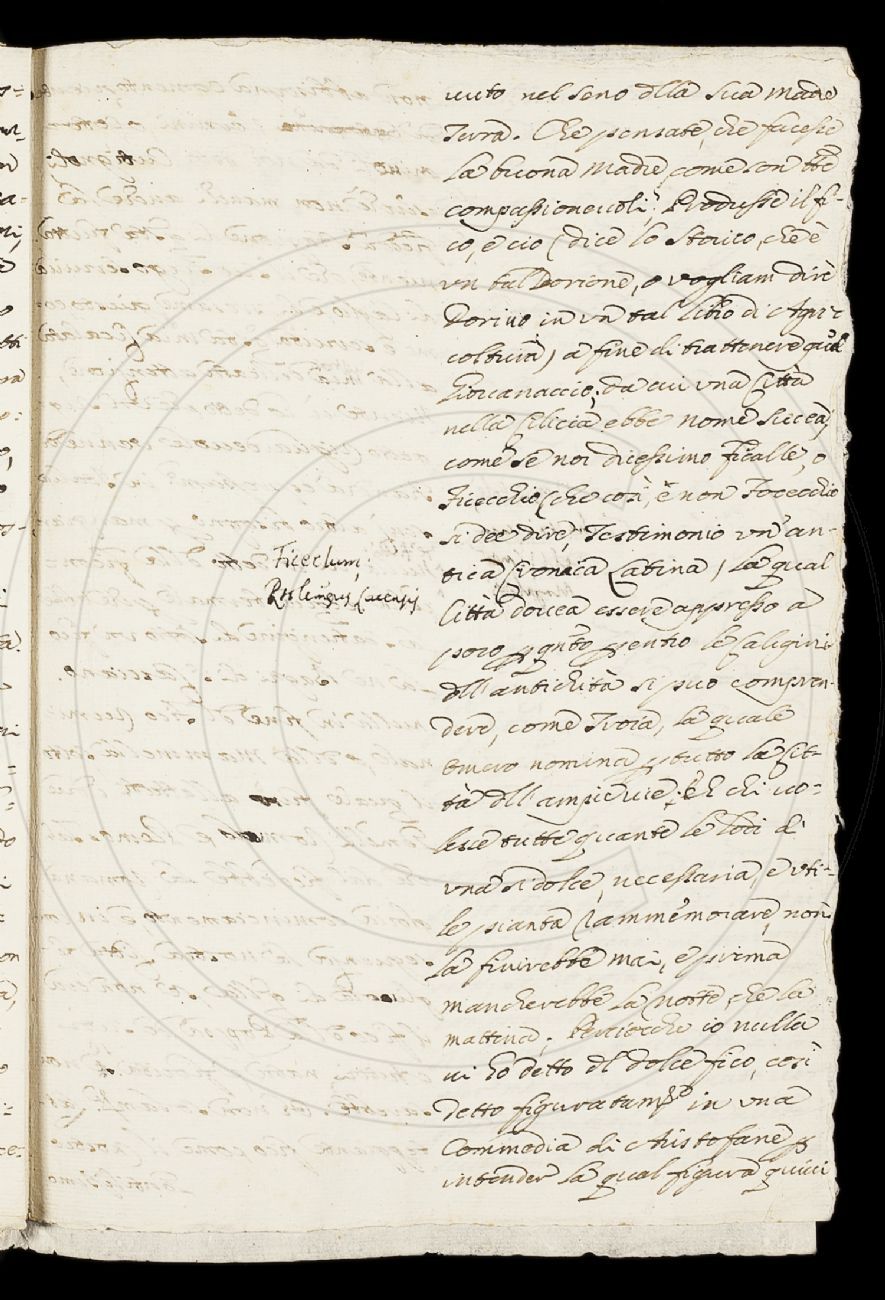 uuto nel seno dlla sua Madre
Terra. Che pensate, che facesse
la buona Madre, come son tte
compassioneuoli; Produsse il fi-
co, e cio (dice lo Storico, che è
un tal Dorione, o vogliam dire
Dorino in un tal libro di Agri-
coltura) a fine di trattenere quel
Giouanaccio; da cui una Città
nella Cilicia ebbe nome Siccea,
come se noi dicessimo Ficalle, o
Ficecchio (che così, e non Focecchio
si dee dire, Testimonio un'an-
tica Cronaca Latina) la qual
Ficeclum;
Città douea essere appresso a
poco p qnto pentro le caligini
dll'antichità si puo compren-
dere, come Troia, la quale
Omero nomina p tutto la Cit-
tà dll'ampie vie; Eh chi uo-
lesse tutte quante le lodi di
una si dolce, necessaria, e uti-
le pianta rammemorare, non
la finirebbe mai, e prima
mancherebbe la notte, che la
mattina. Perciocche io nulla
ui ho detto dl dolce fico, così
detto figuratamte in una
Commedia di Aristofane p
intender la qual figura quiui